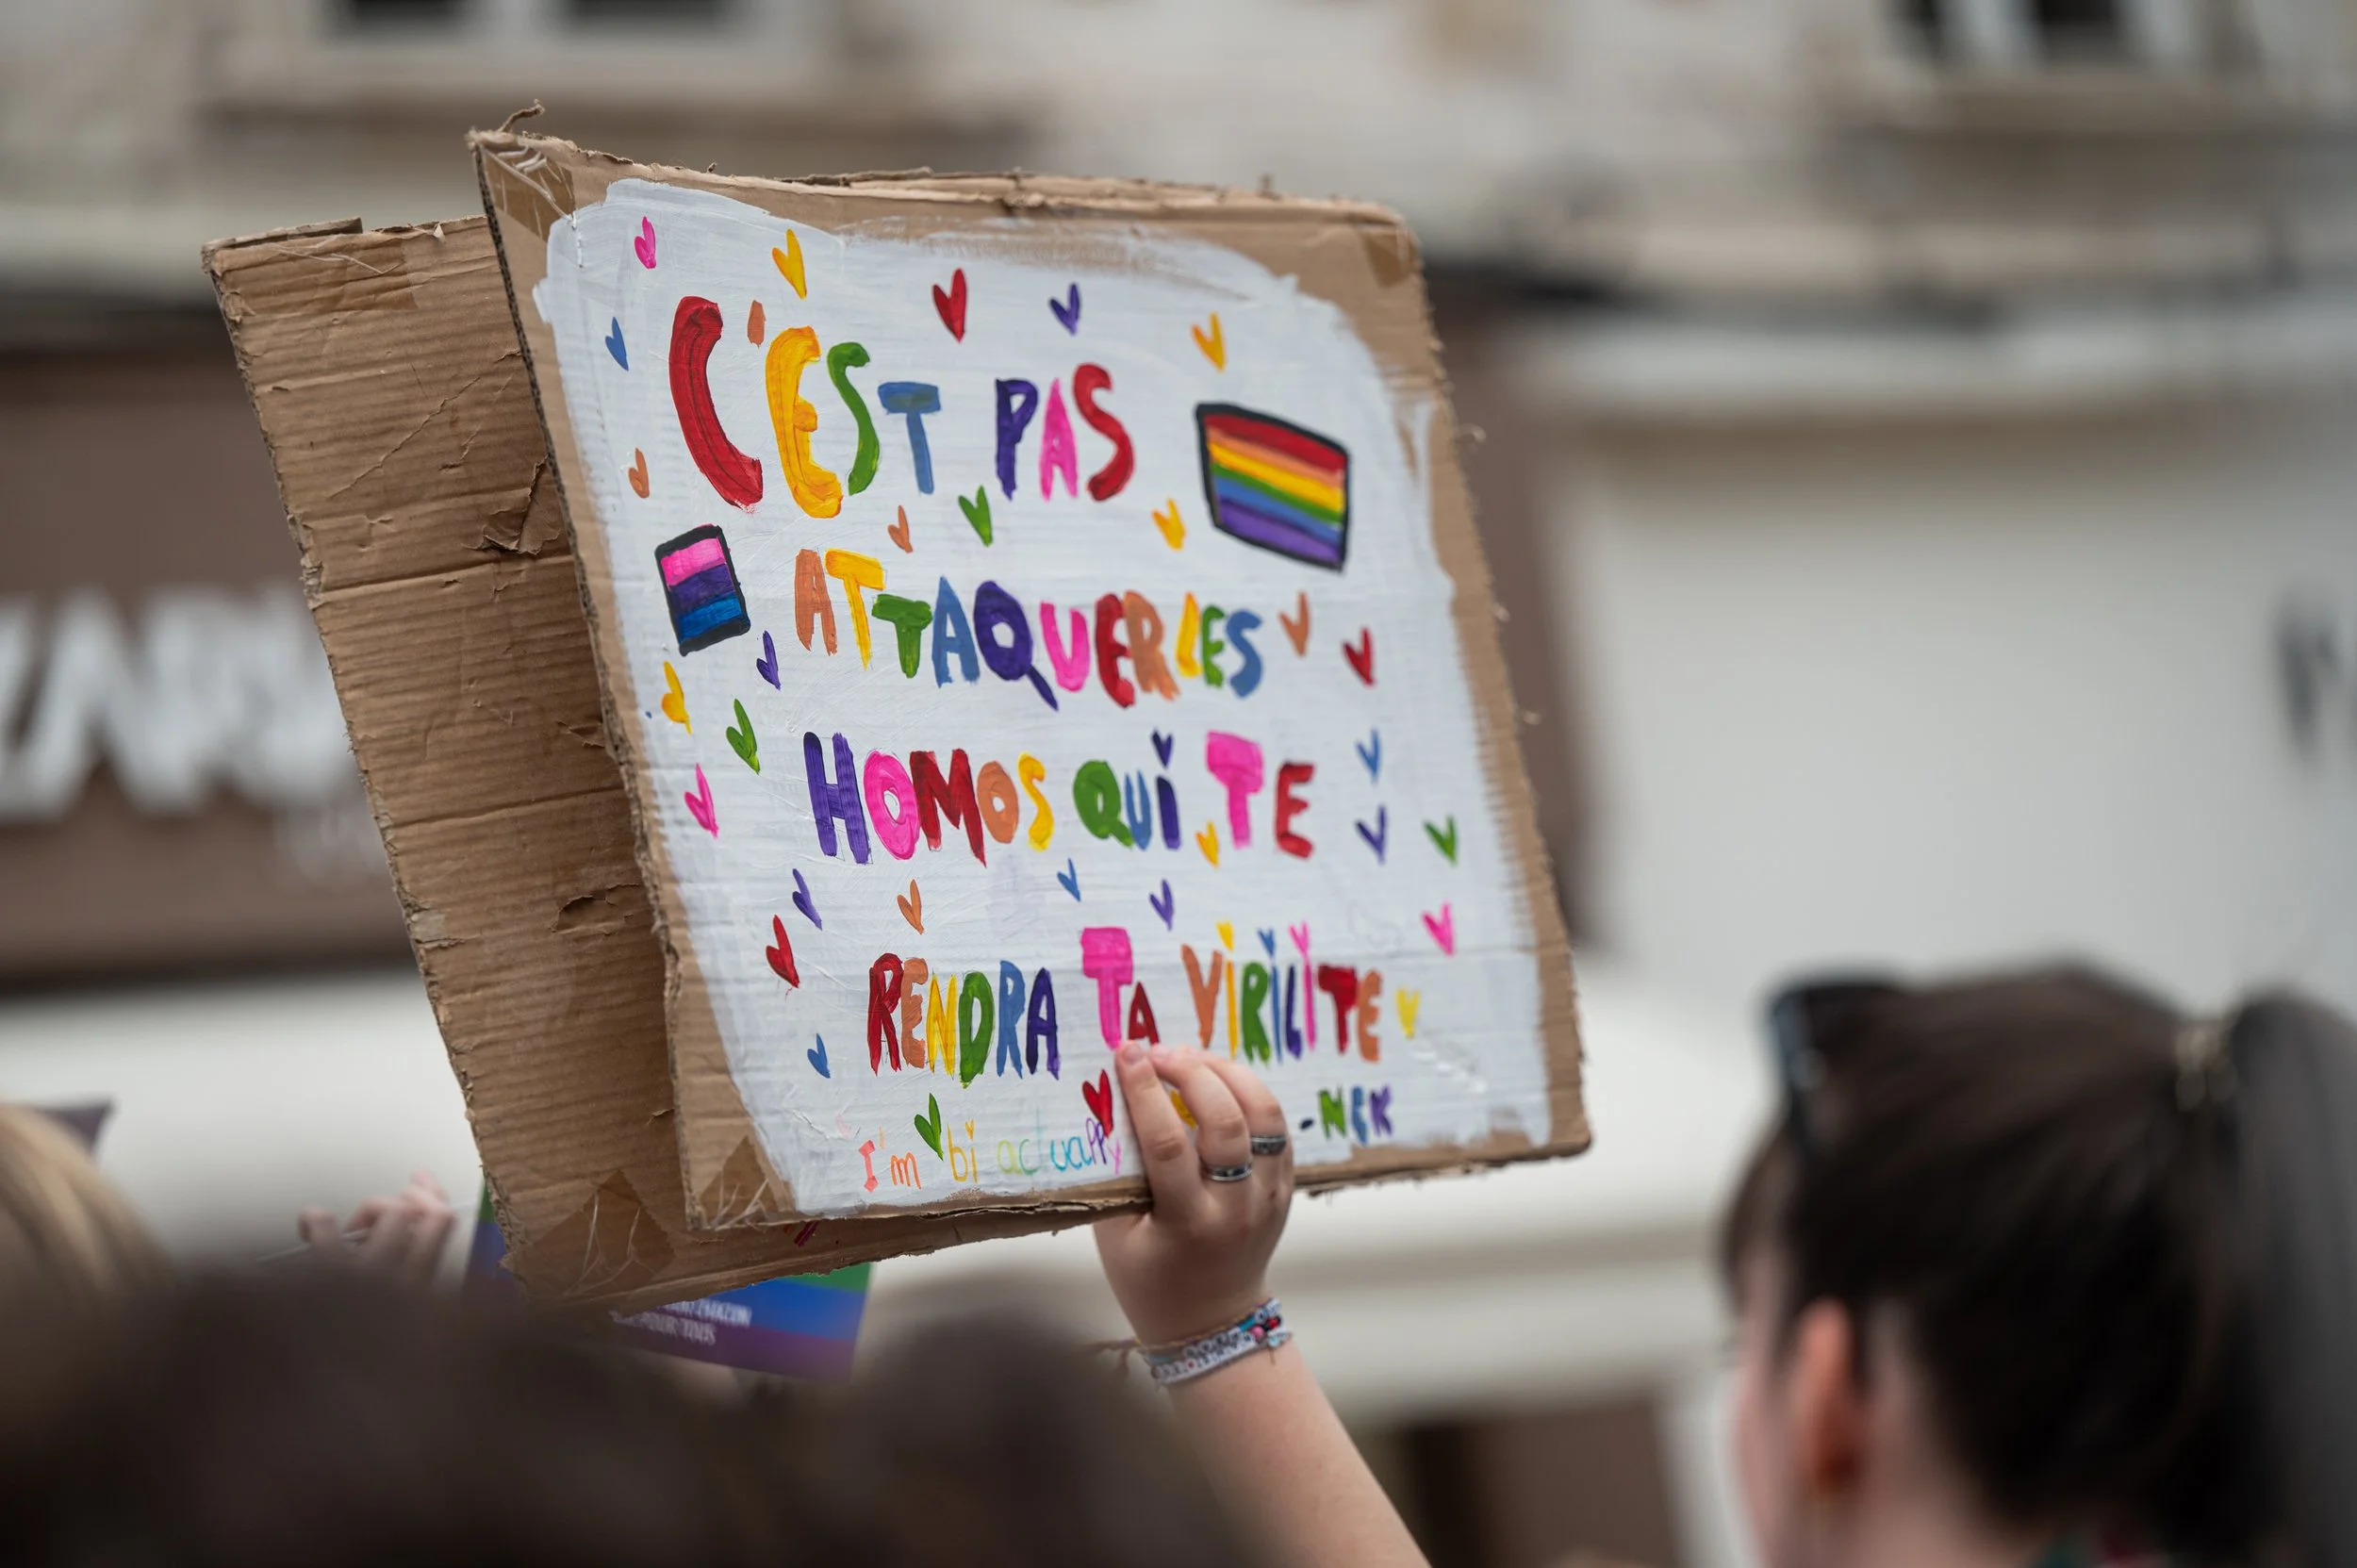 C'EST PAS
ATTAQUER LES
HOMOS QUi TE
RENDRA TA ViRiLiTE
-NEK
I'm bi actually
POUR TOUS